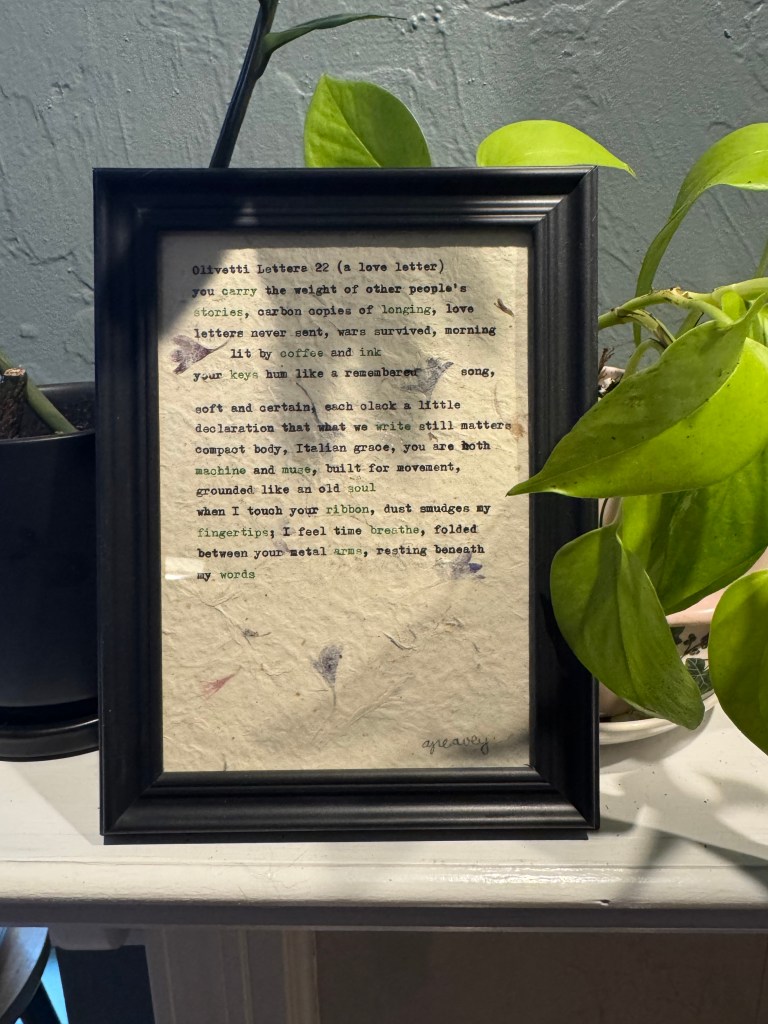 Olivetti Letters 22 (a love letter)
you carry the weight of other people's
stories, carbon copies of longing, love
letters never sent, wars survived, morning
lit by coffee and ink
your keys hum like a remembered song,
soft and certain, each clack a little
declaration that what we write still matters
compact body, Italian grace, you are both
machine and muse, built for movement,
grounded like an old soul
when I touch your ribbon, dust smudges my
fingertips; I feel time breathe, folded
between your metal arms, resting beneath
my words